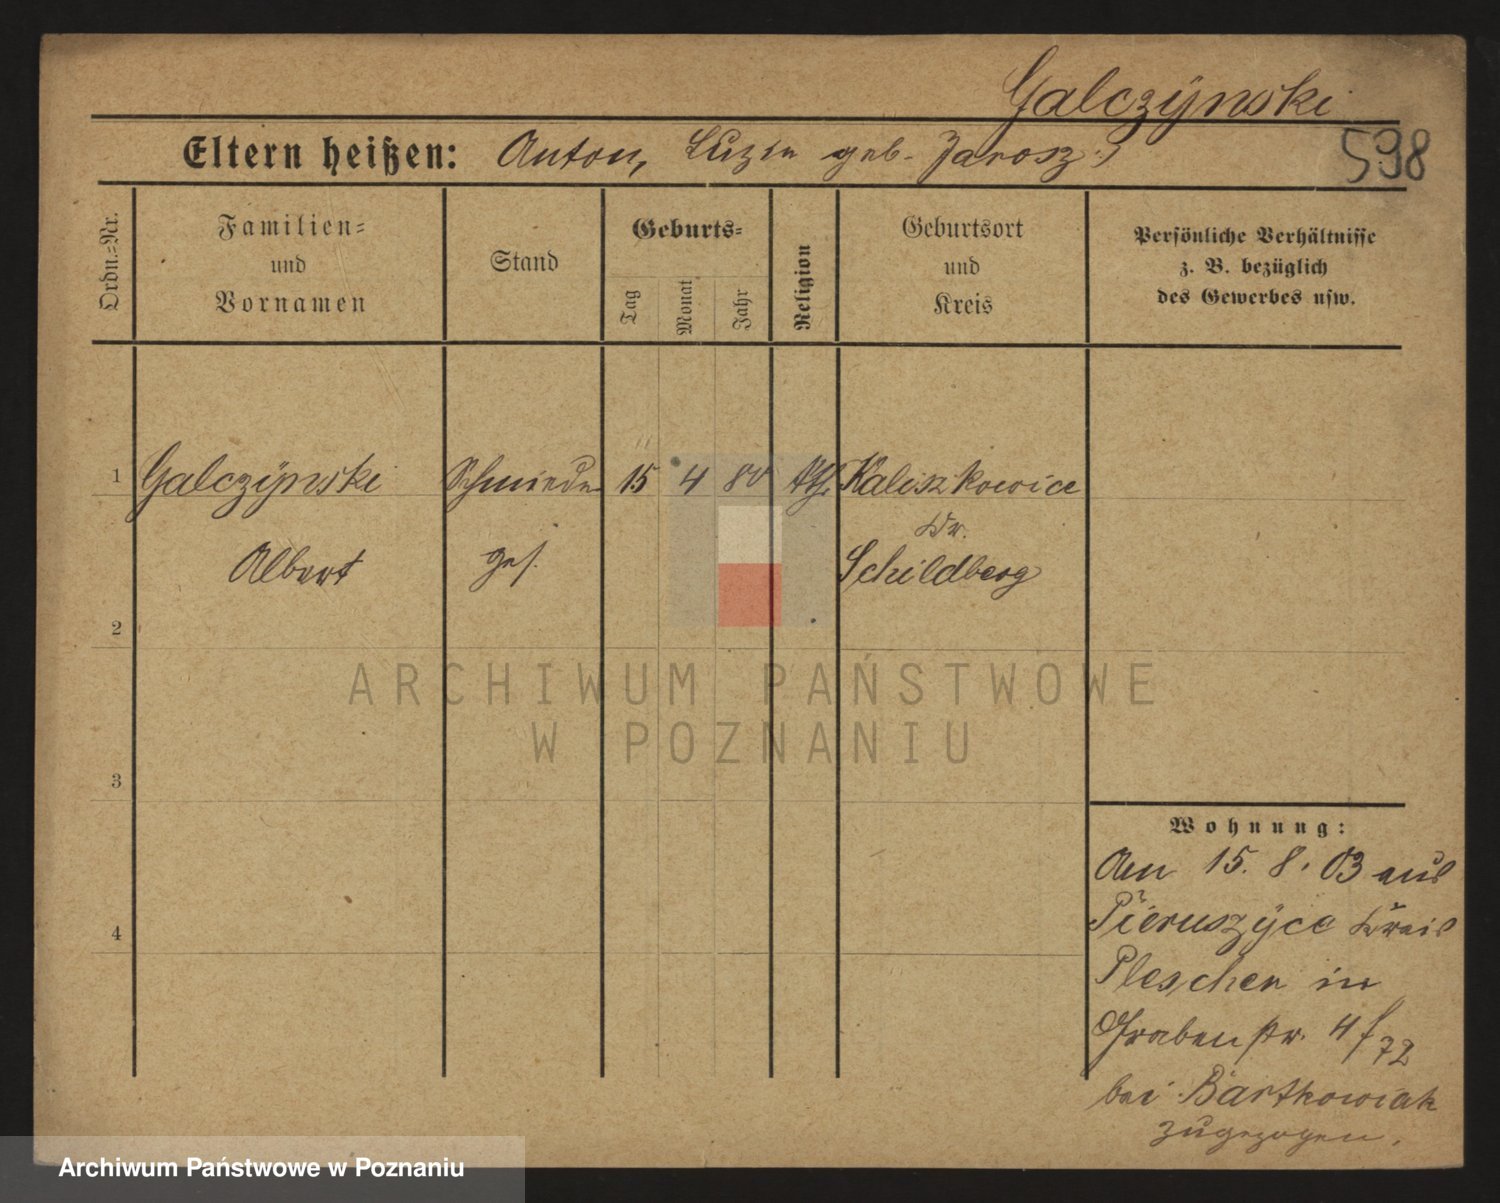 Galczÿnski
598
Eltern heißen: Anton, Luzie geb. Jarosz
Ordn.-Nr.
Familien-
und
Vornamen
Stand
Geburts-
Tag
Monat
Jahr
Religion
Geburtsort
und
Kreis
Persönliche Verhältnisse
z. B. bezüglich
des Gewerbes usw.
1 Galczÿnski Schmiede 15 4 80 kth. Kaliszkowice
Kr.
Albert ges. Schildberg
2
3
4
Wohnung:
Am 15. 8. 03 aus
Pieruszÿce Kreis
Pleschen in
Grabenstr. 4 f 72
bei Bartkowiak
zugezogen.
ARCHIWUM PAŃSTWOWE
W POZNANIU
Archiwum Państwowe w Poznaniu